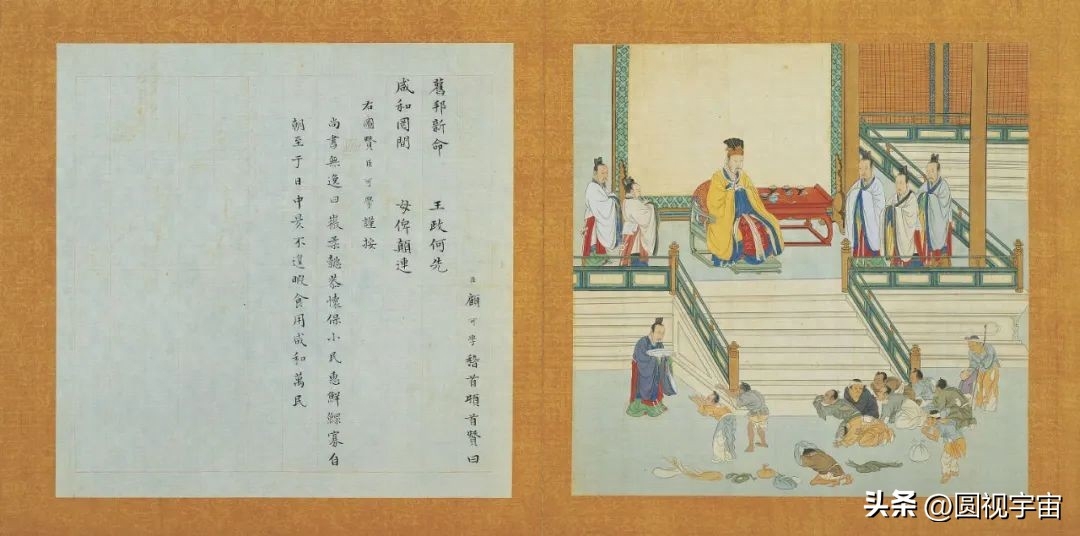 臣顧可學稽首頓首贊曰
舊邦新命 王政何先
咸和罔間 毋俾顛連
右圖贊臣可學謹按
尚書無逸曰徽柔懿恭懷保小民惠鮮鰥寡自
朝至于日中昃不遑暇食用咸和萬民
头条 @圆视宇宙